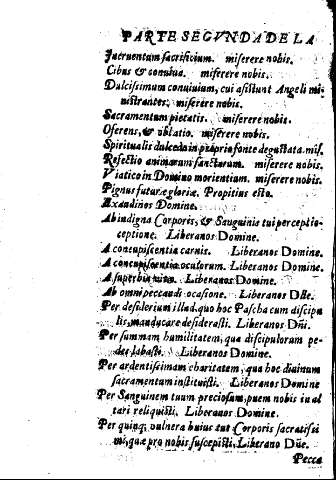 PARTE SEGVNDA DE LA
Incruentum sacrificium. miserere nobis.
Cibus & conuiua. miserere nobis.
Dulcissimum conuiuium, cui assistunt Angeli mi-
nistrantes, miserere nobis.
Sacramentum pietatis. miserere nobis.
Oferens, & oblatio. miserere nobis.
Spiritualis dulcedo in proprio fonte degustata. mis.
Refectio animarum sanctarum. miserere nobis.
Viatico in Domino morientium. miserere nobis.
Pignus futuræ gloriæ. Propitius esto.
Exaudi nos Domine.
Ab indigna Corporis, & Sanguinis tui perceptio-
ceptione. Liberanos Domine.
A concupiscentia carnis. Liberanos Domine.
A concupiscentia oculorum. Liberanos Domine.
A superbia vitæ. Liberanos Domine.
Ab omni peccandi ocasione. Liberanos Dñe.
Per desiderium illud, quo hoc Pascha cum discipu
lis, manducare desiderasti. Liberanos Dñi.
Per summam humilitatem, qua discipulorum pe-
des labasti. Liberanos Domine.
Per ardentissimam charitatem, qua hoc diuinum
sacramentum instituisti. Liberanos Domine
Per Sanguinem tuum preciosum, quem nobis in al
tari reliquisti. Liberanos Domine.
Per quinq; vulnera huius tui Corporis sacratissi
mi, quæ pro nobis suscepisti, Liberano Dñe.
Pecca